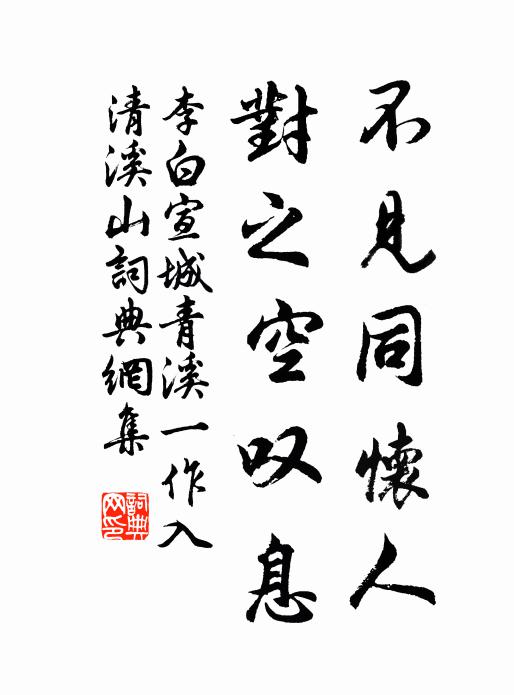 不見同懷人
對之空叹息
李白宣城青溪一作入
清溪山詞典網集
詞典网印